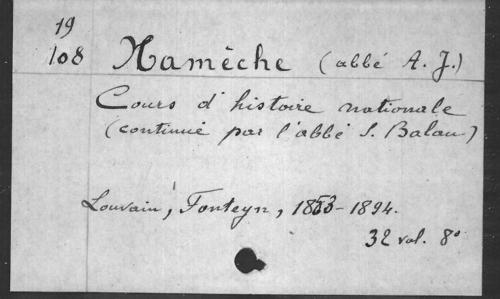 19
108 Namèche (abbé A. J.)
Cours d'histoire nationale
(continué par l'abbé S. Balau)
Louvain, Fonteyn, 1853-1894.
32 vol. 8°